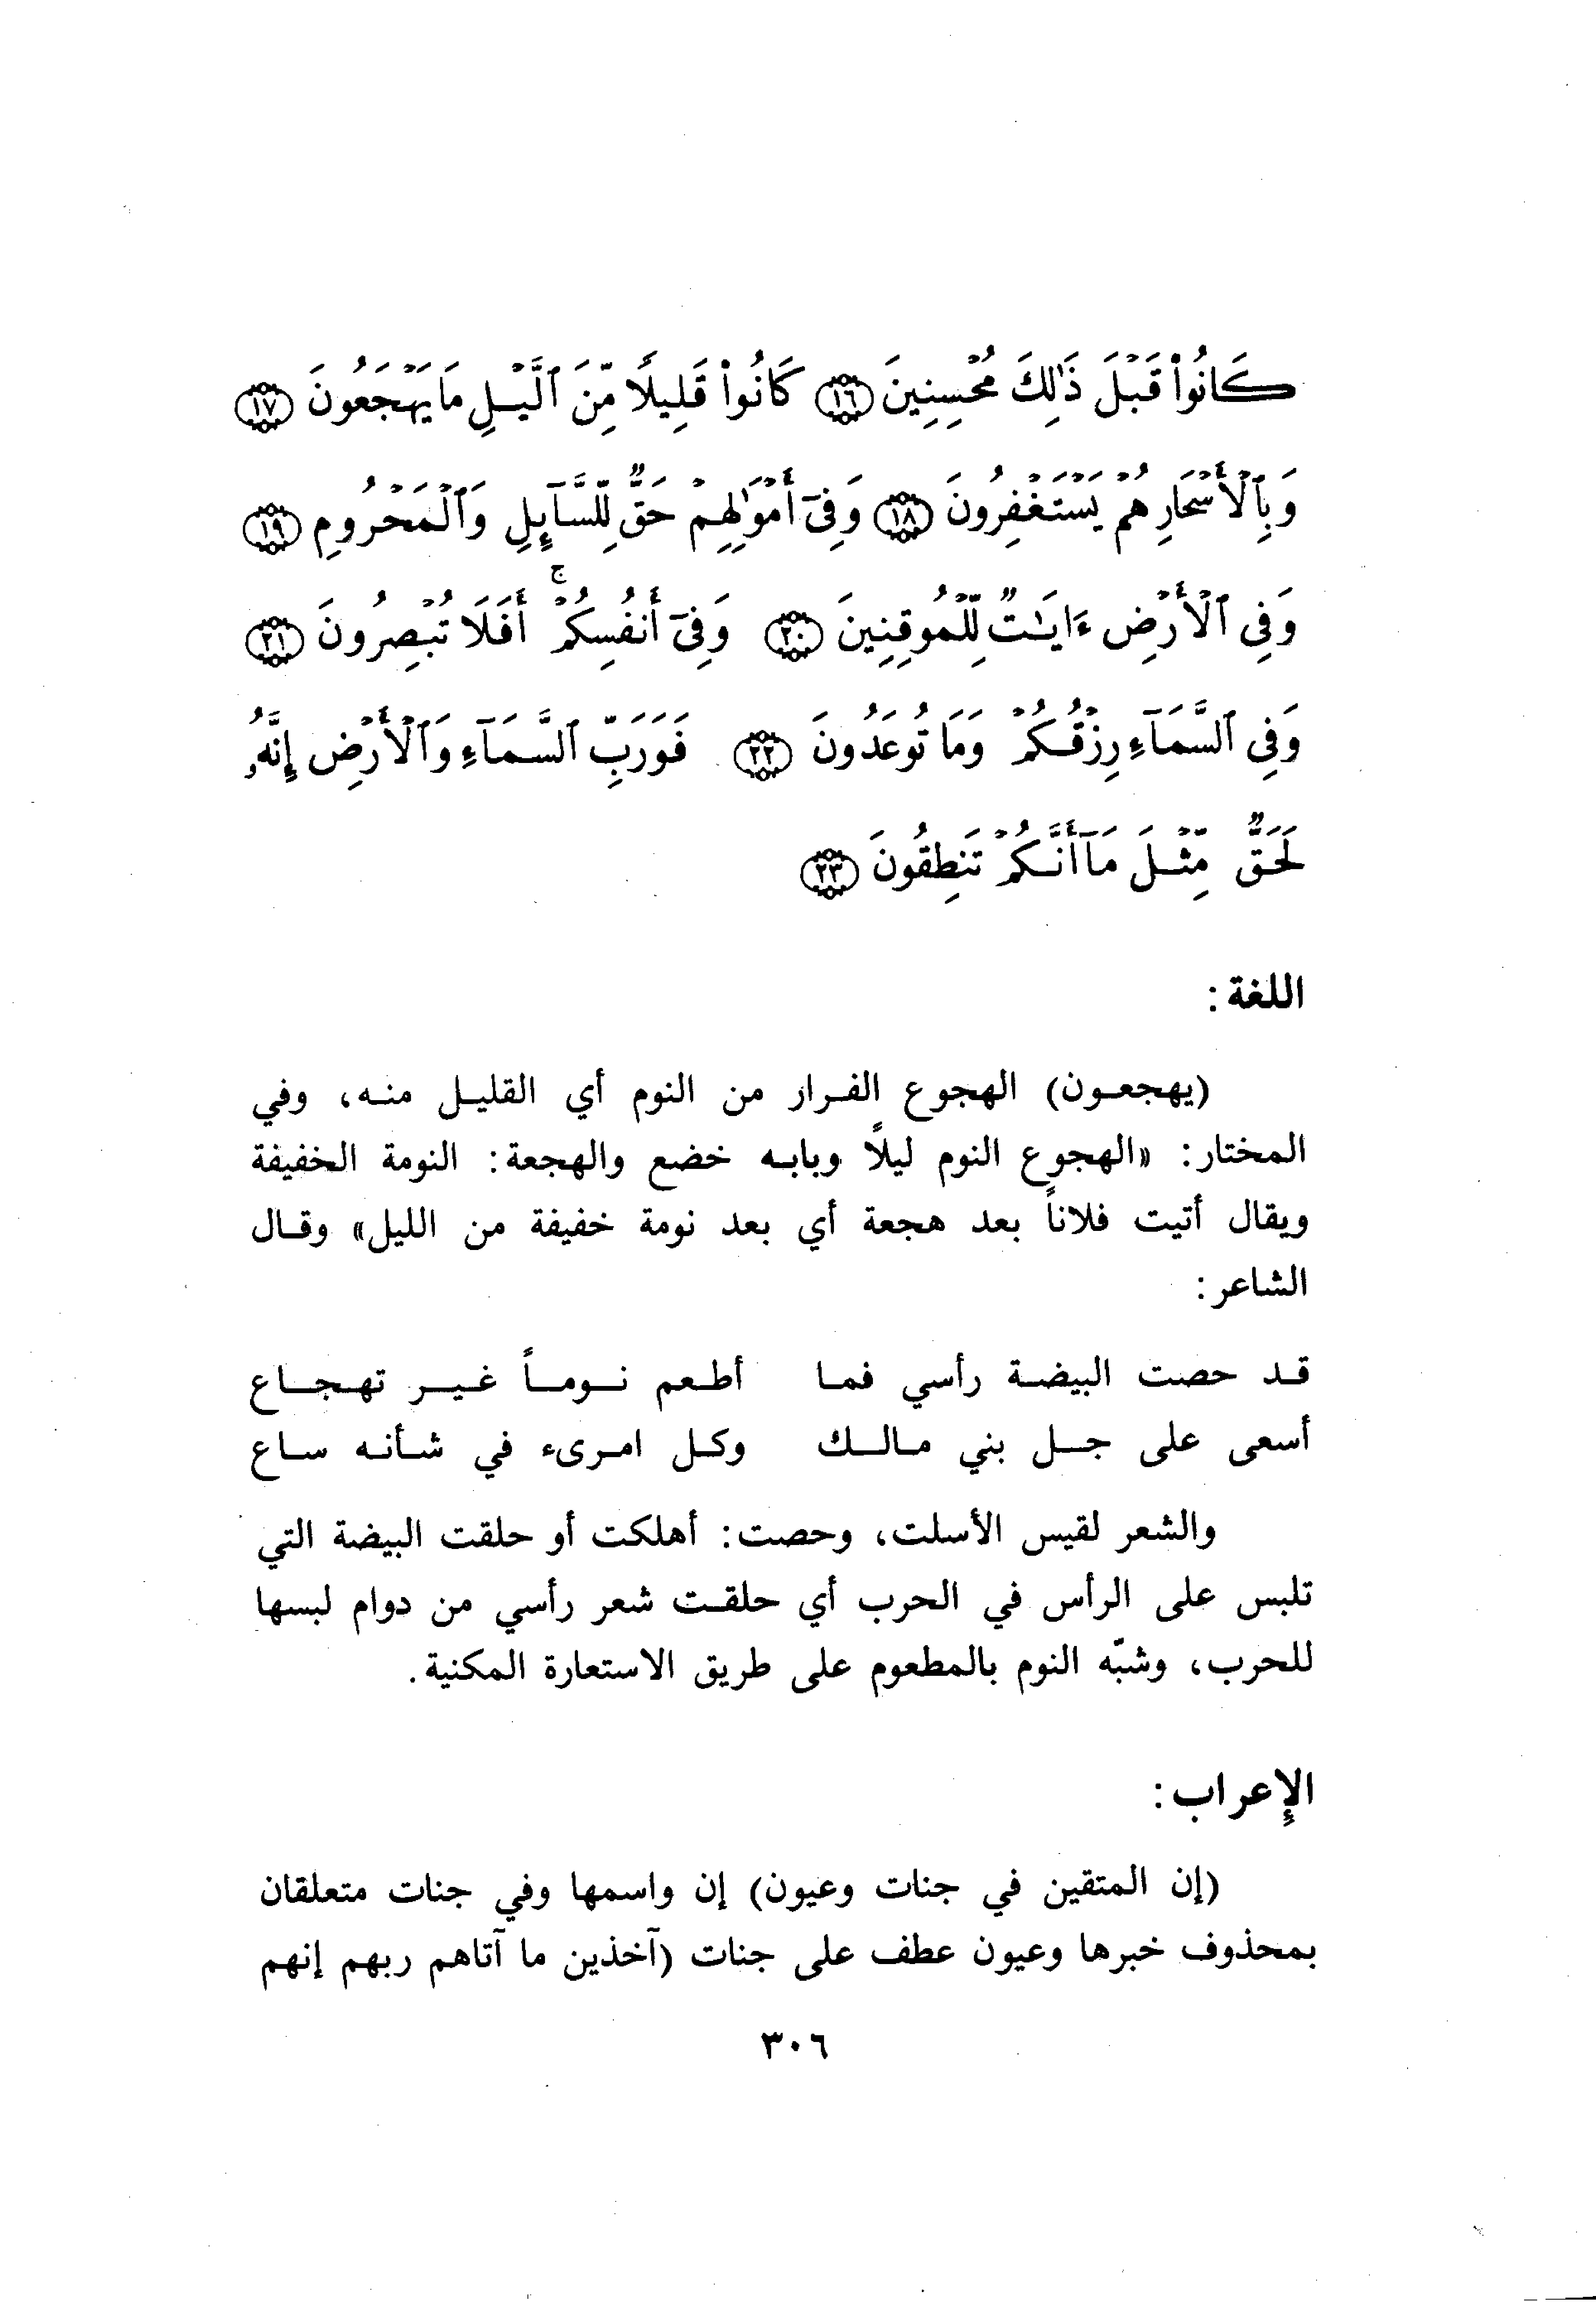 كَانُوا۟ قَبْلَ ذَٰلِكَ مُحْسِنِينَ ١٦ كَانُوا۟ قَلِيلًا مِّنَ ٱلَّيْلِ مَا يَهْجَعُونَ ١٧
وَبِٱلْأَسْحَارِ هُمْ يَسْتَغْفِرُونَ ١٨ وَفِىٓ أَمْوَٰلِهِمْ حَقٌّ لِّلسَّآئِلِ وَٱلْمَحْرُومِ ١٩
وَفِى ٱلْأَرْضِ ءَايَٰتٌ لِّلْمُوقِنِينَ ٢٠ وَفِىٓ أَنفُسِكُمْ ۚ أَفَلَا تُبْصِرُونَ ٢١
وَفِى ٱلسَّمَآءِ رِزْقُكُمْ وَمَا تُوعَدُونَ ٢٢ فَوَرَبِّ ٱلسَّمَآءِ وَٱلْأَرْضِ إِنَّهُۥ
لَحَقٌّ مِّثْلَ مَآ أَنَّكُمْ تَنطِقُونَ ٢٣
اللغة :
(يهجعون) الهجوع الفرار من النوم أي القليل منه، وفي
المختار: «الهجوع النوم ليلًا وبابه خضع والهجعة: النومة الخفيفة
ويقال أتيت فلاناً بعد هجعة أي بعد نومة خفيفة من الليل» وقال
الشاعر:
قد حصت البيضة رأسي فما أطعم نوماً غير تهجاع
أسعى على جل بني مالك وكل امرىء في شأنه ساع
والشعر لقيس الأسلت، وحصت: أهلكت أو حلقت البيضة التي
تلبس على الرأس في الحرب أي حلقت شعر رأسي من دوام لبسها
للحرب، وشبّه النوم بالمطعوم على طريق الاستعارة المكنية.
الإعراب:
(إن المتقين في جنات وعيون) إن واسمها وفي جنات متعلقان
بمحذوف خبرها وعيون عطف على جنات (آخذين ما آتاهم ربهم إنهم
٣٠٦